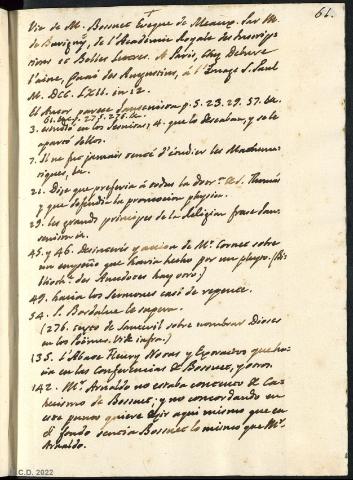 61.
Vie de M. Bossuet Eveque de Meaux. Par M.
de Burigny, de l'Académie Royale des Inscrip-
tions et Belles Lettres. A Paris, Chez Debure
l'ainé, Quai des Augustins, à l'Image S. Paul
M. DCC. LXII. in 12.
El Autor parece Jansenista p. 5. 23. 29. 57. &c.
3. estudió en los Jesuitas, 4. que lo deseaban, y se le
apartó de llos.
7. Il ne fut jamais tenté d'étudier les Mathema-
tiques, &c.
21. Dice que prefería á todas la Doctr.ª de S. Thomás
y que defendía la promocion physica.
29. Les grands principes de la Religion frase Jan-
senistica.
45. y 46. Desinterés y accion de Mr. Cornet sobre
un empeño que havia hecho por un pleyto.
49. hacía los Sermones casi de repente.
54. P. Bordalue lo supera.
(276. cerca de Santeuil sobre nombrar Dioses
en los Poëmas. Vide infra.)
135. l'Abate Fleury Notas y Extractos que ha-
cía en las Conferencias de Bossuet, y otros.
142. Mr. Arnaldo no estaba contento de Ca-
thecismo de Bossuet; y no concordando en
este punto quiere decir aqui mismo que en
el fondo sentía Bossuet lo mismo que Mr.
Arnaldo.
C.D. 2022